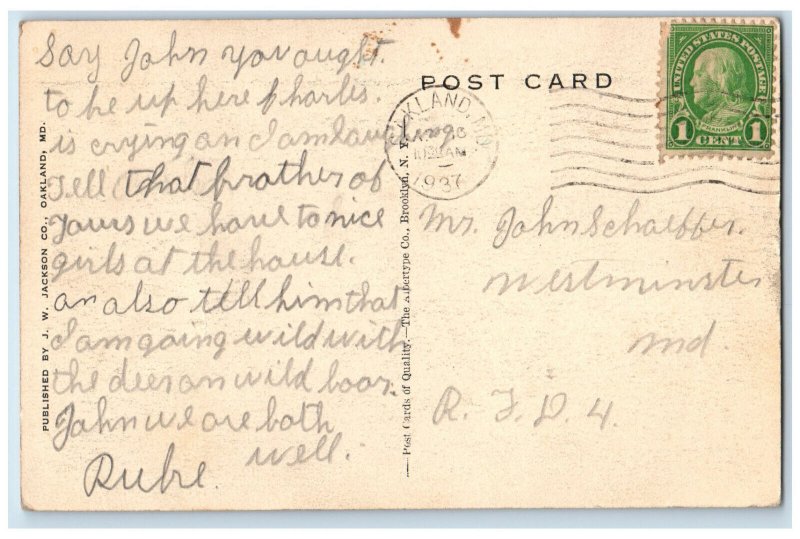 Say John you ought.
to be up here Charles.
is crying an I am laughing.
Tell that brother of
yours we have to nice
girls at the house.
an also tell him that
I am going wild with
the deer an wild boar.
John we are both
well.
Rube.
PUBLISHED BY J. W. JACKSON CO., OAKLAND, MD.
Post Cards of Quality.—The Albertype Co., Brooklyn, N. Y.
POST CARD
OAKLAND, MD.
1937
UNITED STATES POSTAGE
FRANKLIN
1 CENT 1
Mr. John Schaeffer.
Westminster
Md.
R. F. D. 4.